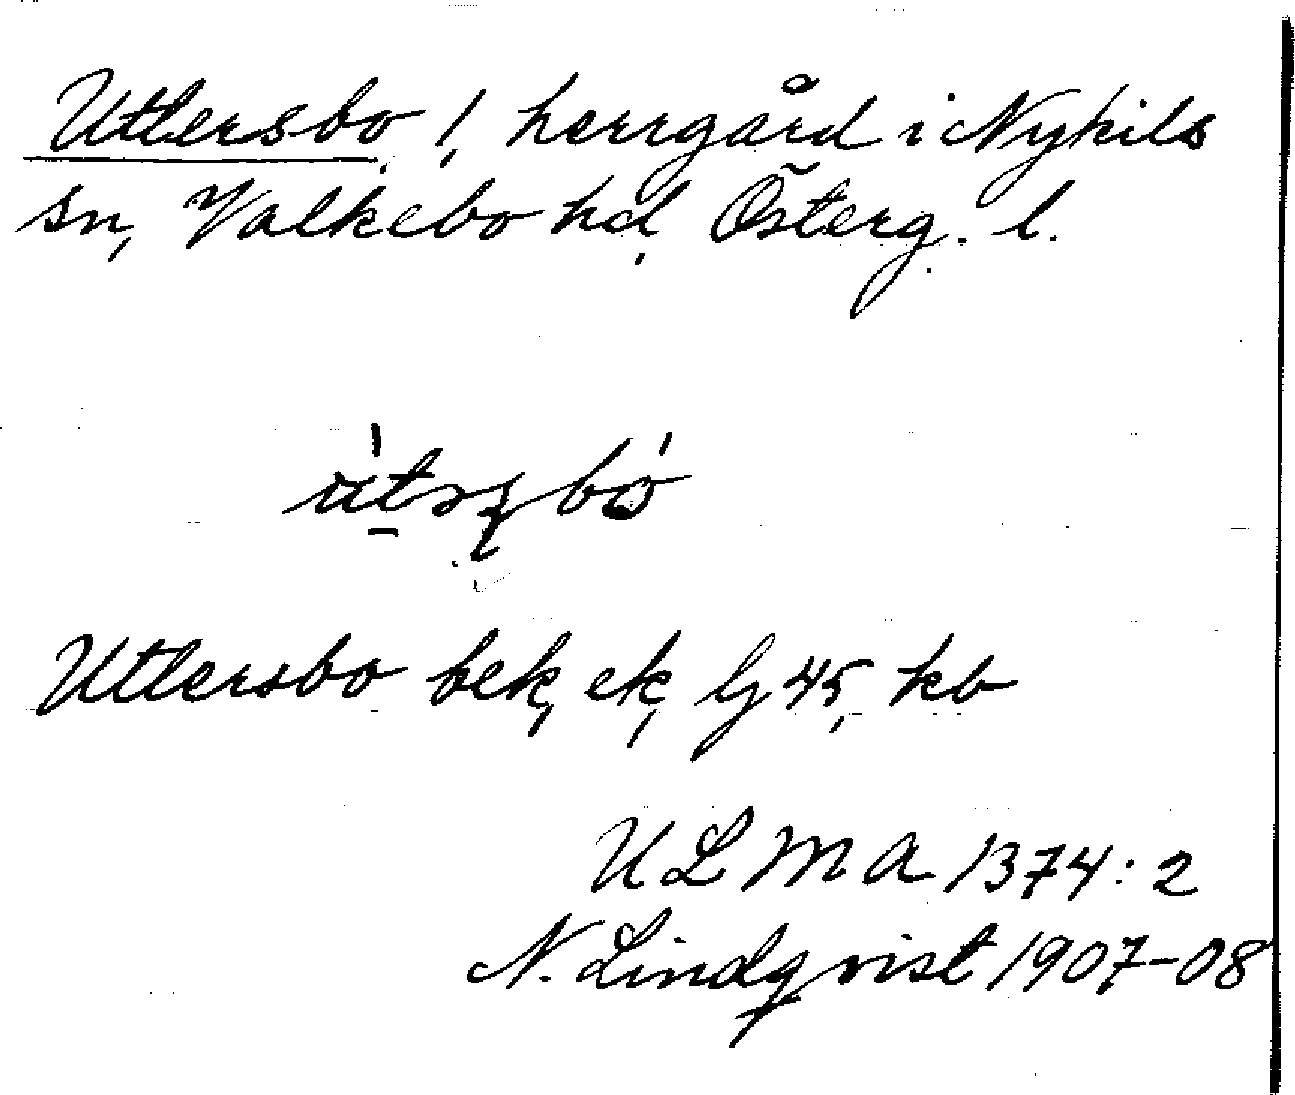 Utlersbo !, herrgård i Nykils
sn, Valkebo hd, Österg. l.
Utlersbo bek, ek, lj 45, kb
ULMA 1374:2
N. Lindqvist 1907-08